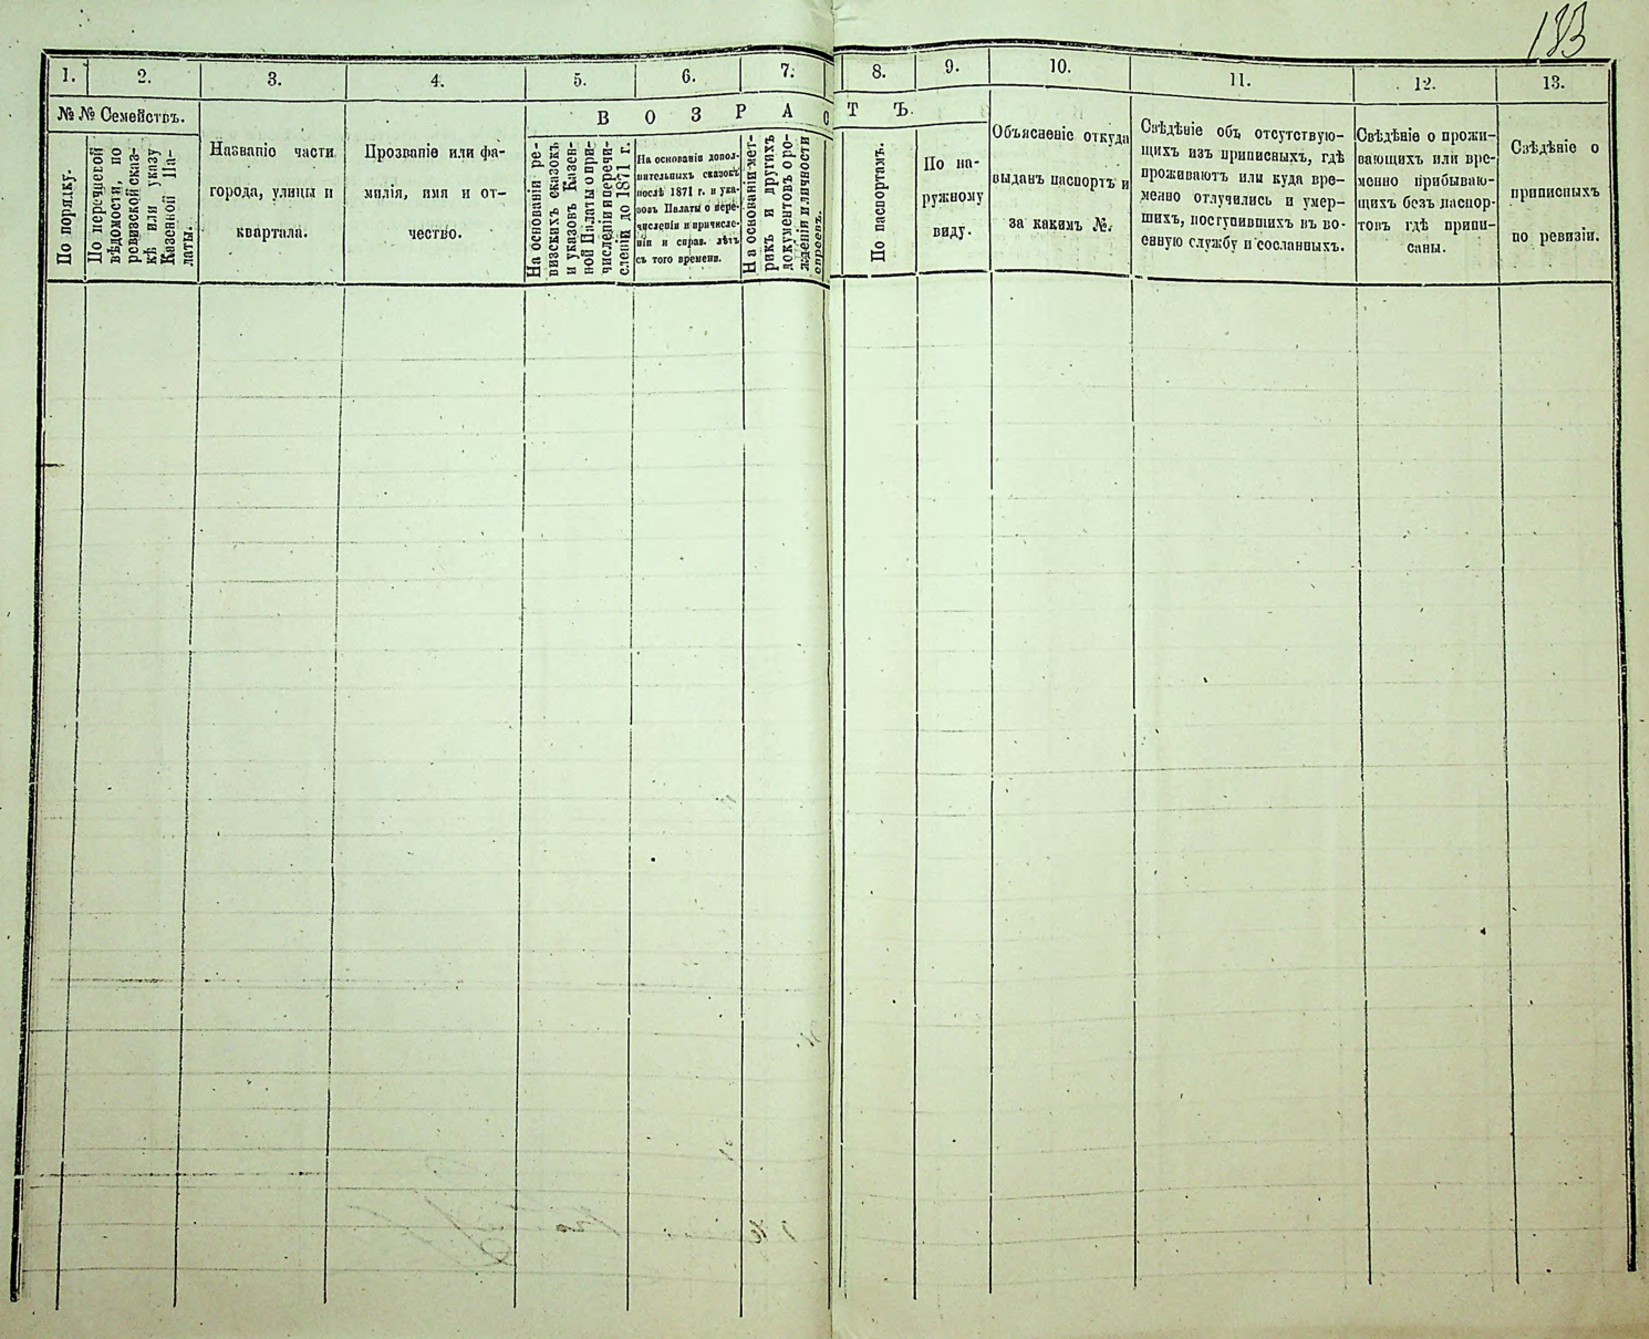 183
1.
2.
3.
4.
5.
6.
7.
8.
9.
10.
11.
12.
13.
№ № Семействъ.
По порядку.
По перечневой
вѣдомости, по
ревизской сказ-
кѣ или указу
Казенной Па-
латы.
Названіе части
города, улицы и
квартала.
Прозваніе или фа-
милія, имя и от-
чество.
ВОЗРАСТЪ.
На основаніи ре-
визскихъ сказокъ
и указовъ Казен-
ной Палаты о при-
численіи и перечи-
сленіи до 1871 г.
На основаніи допол-
нительныхъ сказокъ
послѣ 1871 г. и ука-
зовъ Палаты о пере-
численіи и причисле-
ніи и справ. лѣтъ
съ того времени.
На основаніи мет-
рикъ и другихъ
документовъ о ро-
жденіи и личности
спросъ.
По паспортамъ.
По на-
ружному
виду.
Объясненіе откуда
выданъ паспортъ и
за какимъ №.
Свѣдѣніе объ отсутствую-
щихъ изъ приписныхъ, гдѣ
проживаютъ или куда вре-
менно отлучились и умер-
шихъ, поступившихъ въ во-
енную службу и сосланныхъ.
Свѣдѣніе о прожи-
вающихъ или вре-
менно прибываю-
щихъ безъ паспор-
товъ гдѣ припи-
саны.
Свѣдѣніе о
приписныхъ
по ревизіи.